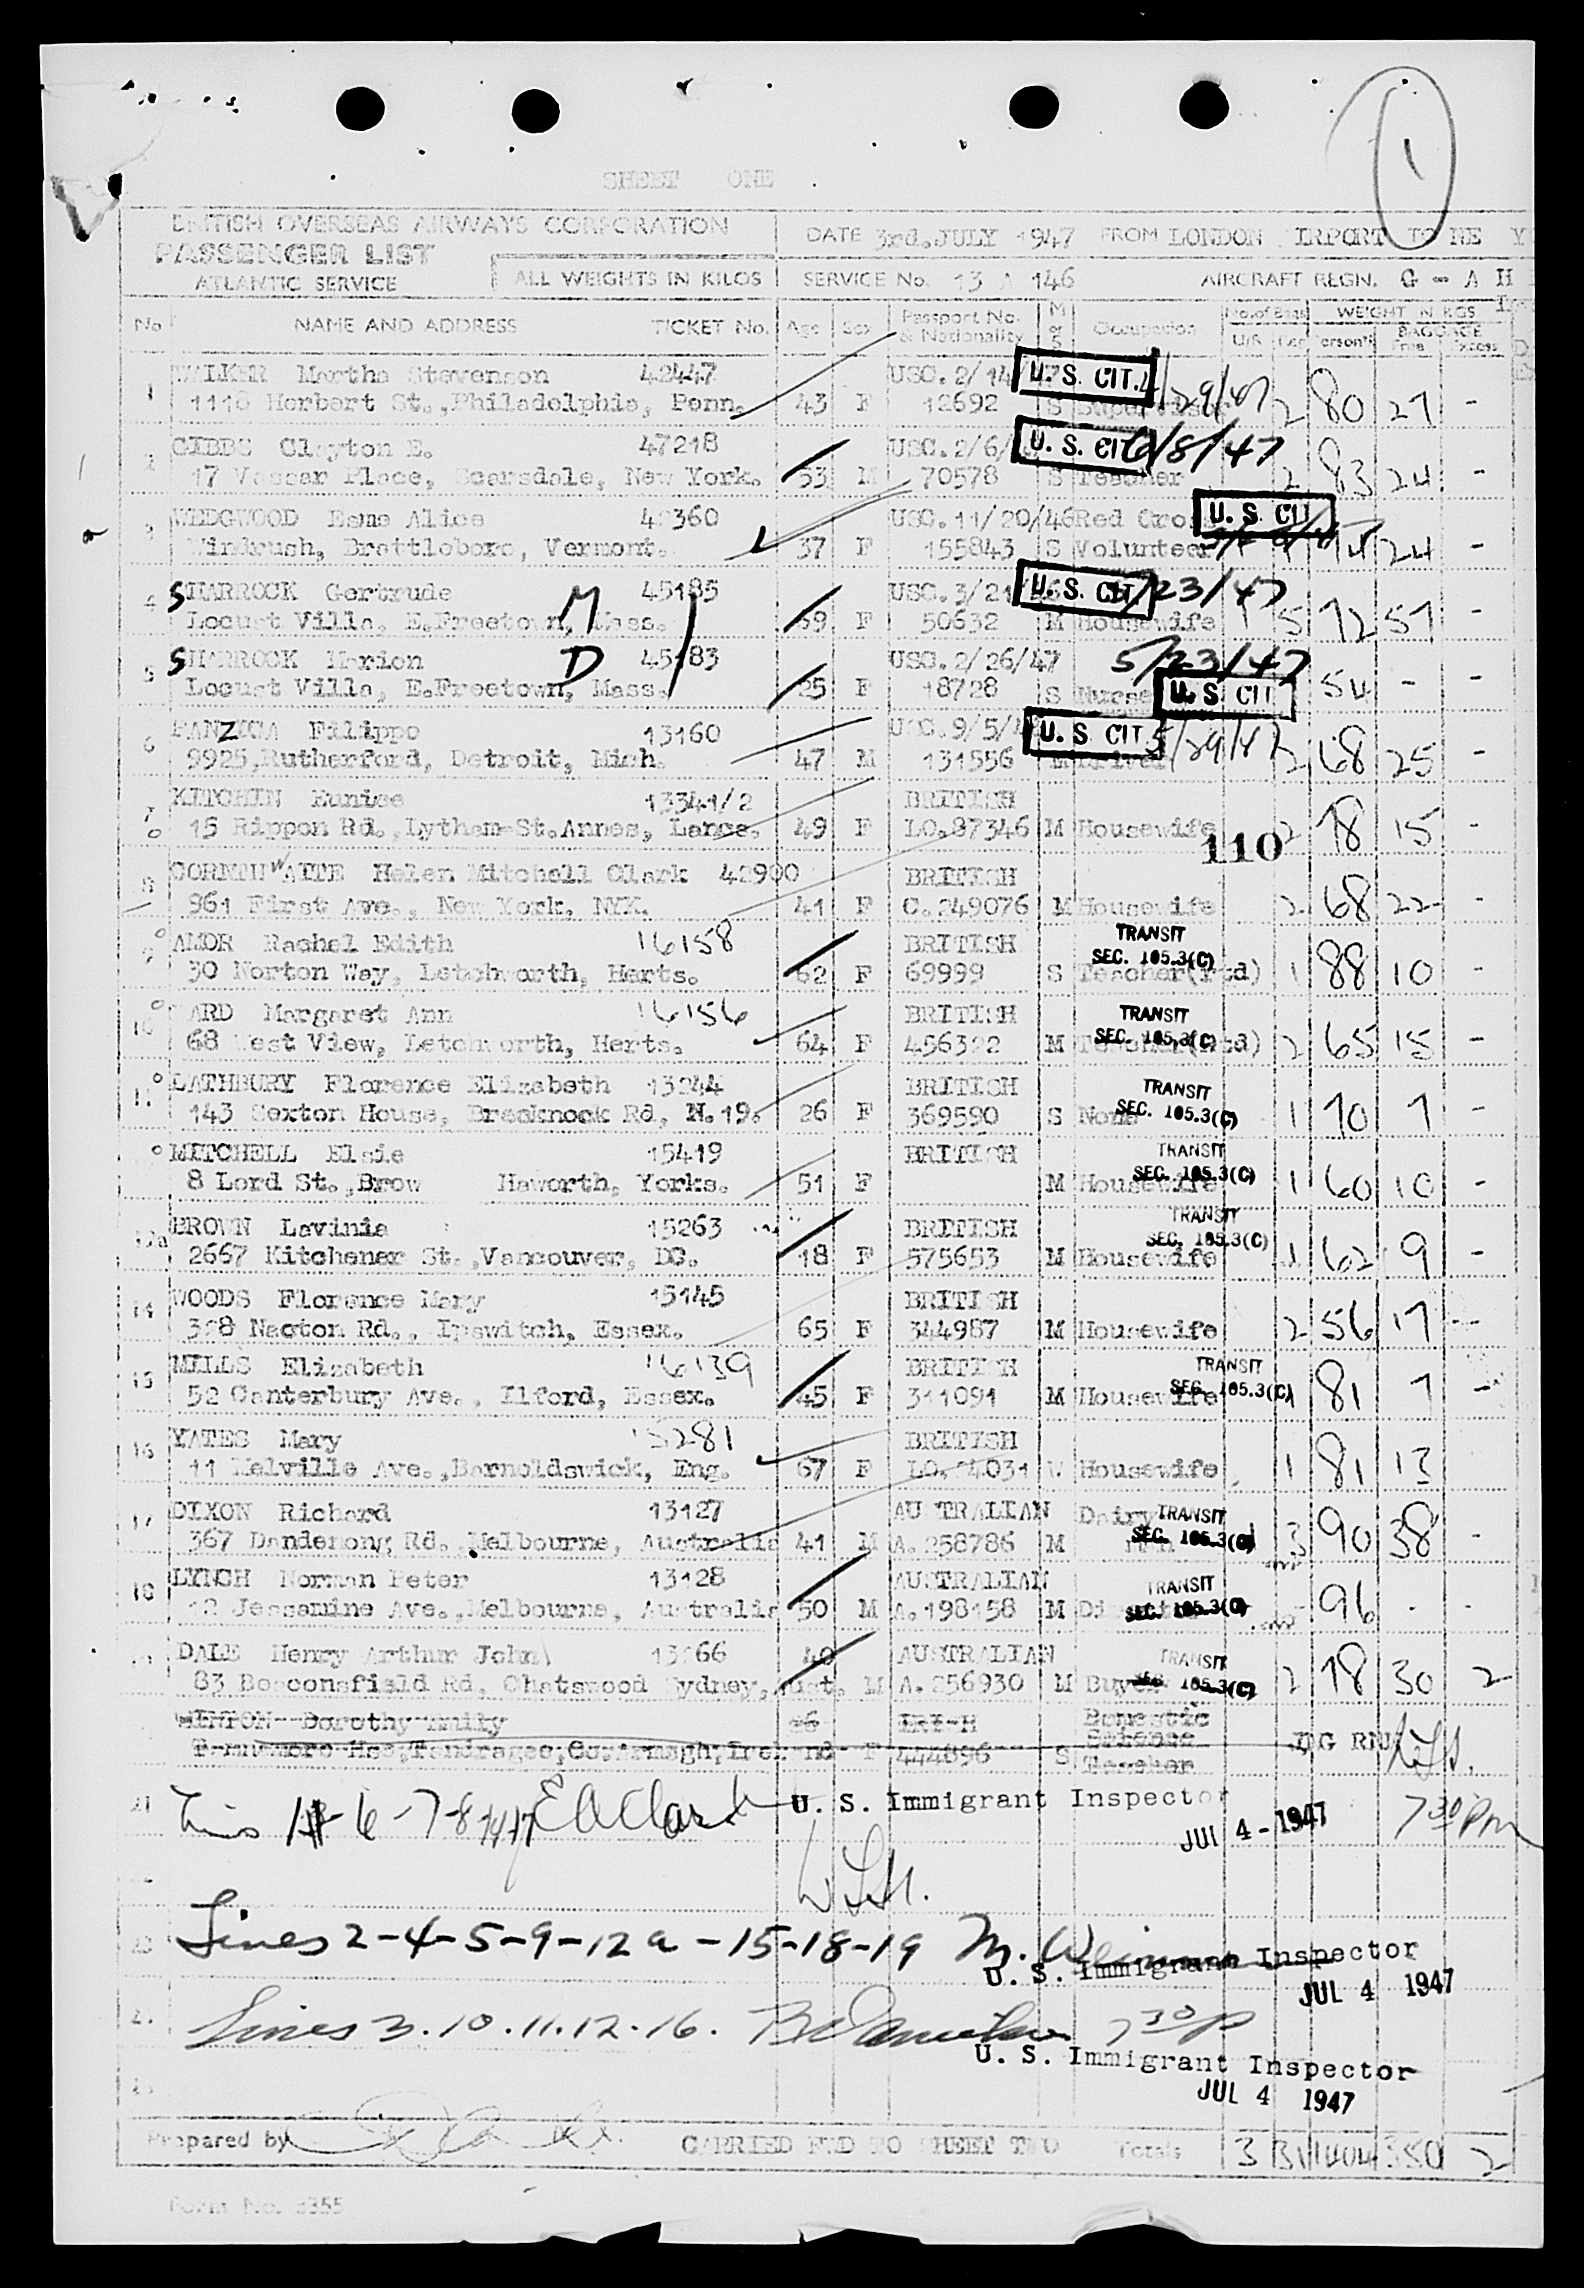 1
SHEET ONE
BRITISH OVERSEAS AIRWAYS CORPORATION
PASSENGER LIST
ATLANTIC SERVICE
ALL WEIGHTS IN KILOS
DATE 3rd.JULY 1947 FROM LONDON IRPORT TO NE Y
SERVICE No. 13 A 146 AIRCRAFT REGN. G - A H
No NAME AND ADDRESS TICKET No. Age Sex Passport No. & Nationality M or S Occupation No. of Bags U/S WEIGHT IN KGS Person'l BAGGAGE Free Excess
1 WALKER Martha Stevenson 42447 USC. 2/14/47 U. S. CIT. 4/29/47
1118 Herbert St., Philadelphia, Penn. 43 F 12692 S Supervisor 2 80 27 -
2 GIBBS Clayton E. 47218 USC. 2/6/ U. S. CIT 6/8/47
17 Vassar Place, Scarsdale, New York. 53 M 70578 S Teacher 2 83 24 -
3 WEDGWOOD Esme Alice 42360 USC. 11/20/46 Red Cross U. S. CIT
Windrush, Brattleboro, Vermont. 37 F 155843 S Volunteer 24 -
4 SHARROCK Gertrude M 45185 USC. 3/21/46 U. S. CIT 5/23/47
Locust Villa, E.Freetown, Mass. 59 F 50632 M Housewife 1 5 72 57 -
5 SHARROCK Marion D 45183 USC. 2/26/47 5/23/47
Locust Villa, E.Freetown, Mass. 25 F 18728 S Nurse U. S CIT 54 - -
6 PANZICA Filippo 13160 USC. 9/5/ U. S. CIT. 5/29/47
9925, Rutherford, Detroit, Mich. 47 M 131556 M Driver 2 68 25 -
7 KITCHIN Eunice 13341/2 BRITISH
15 Rippon Rd., Lytham-St.Annes, Lancs. 49 F LO.87346 M Housewife 2 78 15 -
110
8 CORNTHWAITE Helen Mitchell Clark 42900 BRITISH
961 First Ave., New York, NYK. 41 F C.249076 M Housewife 2 68 22 -
9 AMOR Rachel Edith 16158 BRITISH TRANSIT
30 Norton Way, Letchworth, Herts. 62 F 69999 S Teacher(rtd) SEC. 105.3(C) 1 88 10 -
10 ARD Margaret Ann 16156 BRITISH TRANSIT
68 West View, Letchworth, Herts. 64 F 456322 M Teacher(rtd) SEC. 105.3(C) 2 65 15 -
11 LATHBURY Florence Elizabeth 13244 BRITISH TRANSIT
143 Sexton House, Brecknock Rd, N.19. 26 F 369590 S None SEC. 105.3(C) 1 70 7 -
MITCHELL Elsie 15419 BRITISH TRANSIT
8 Lord St., Brow Haworth, Yorks. 51 F M Housewife SEC. 105.3(C) 1 60 10 -
12a BROWN Lavinia 15263 BRITISH TRANSIT
2667 Kitchener St., Vancouver, BC. 18 F 575653 M Housewife SEC. 105.3(C) 1 62 9 -
14 WOODS Florence Mary 15145 BRITISH
328 Nacton Rd., Ipswitch, Essex. 65 F 344987 M Housewife 2 56 17 -
15 MILLS Elizabeth 16139 BRITISH TRANSIT
52 Canterbury Ave., Ilford, Essex. 45 F 311091 M Housewife SEC. 105.3(C) 1 81 7 -
16 YATES Mary 15281 BRITISH
11 Melville Ave., Barnoldswick, Eng. 67 F W Housewife 1 81 13
17 DIXON Richard 13127 AUSTRALIAN Dairy TRANSIT
367 Dandenong Rd., Melbourne, Australia 41 M A.258786 M SEC. 105.3(C) 3 90 38 -
18 LYNCH Norman Peter 13128 AUSTRALIAN TRANSIT
12 Jessamine Ave., Melbourne, Australia 50 M A.198158 M SEC. 105.3(C) - 96 - -
DALE Henry Arthur John 13166 40 AUSTRALIAN TRANSIT
83 Beaconsfield Rd, Chatswood Sydney, Aust. M A.256930 M Buyer SEC. 105.3(C) 2 78 30 2
Dorothy Emily Domestic Science Teacher
444896 S
21 1 - 6 - 7-8 E A Clark U. S. Immigrant Inspector
JUL 4 - 1947 7 30 PM
Lines 2-4-5-9-12a-15-18-19 M.
U. S. Immigrant Inspector
JUL 4 1947
Lines 3.10.11.12.16. 7 30 P
U. S. Immigrant Inspector
JUL 4 1947
Prepared by CARRIED FWD TO SHEET TWO Totals 3 31 1404 350 2
Form No. 3355